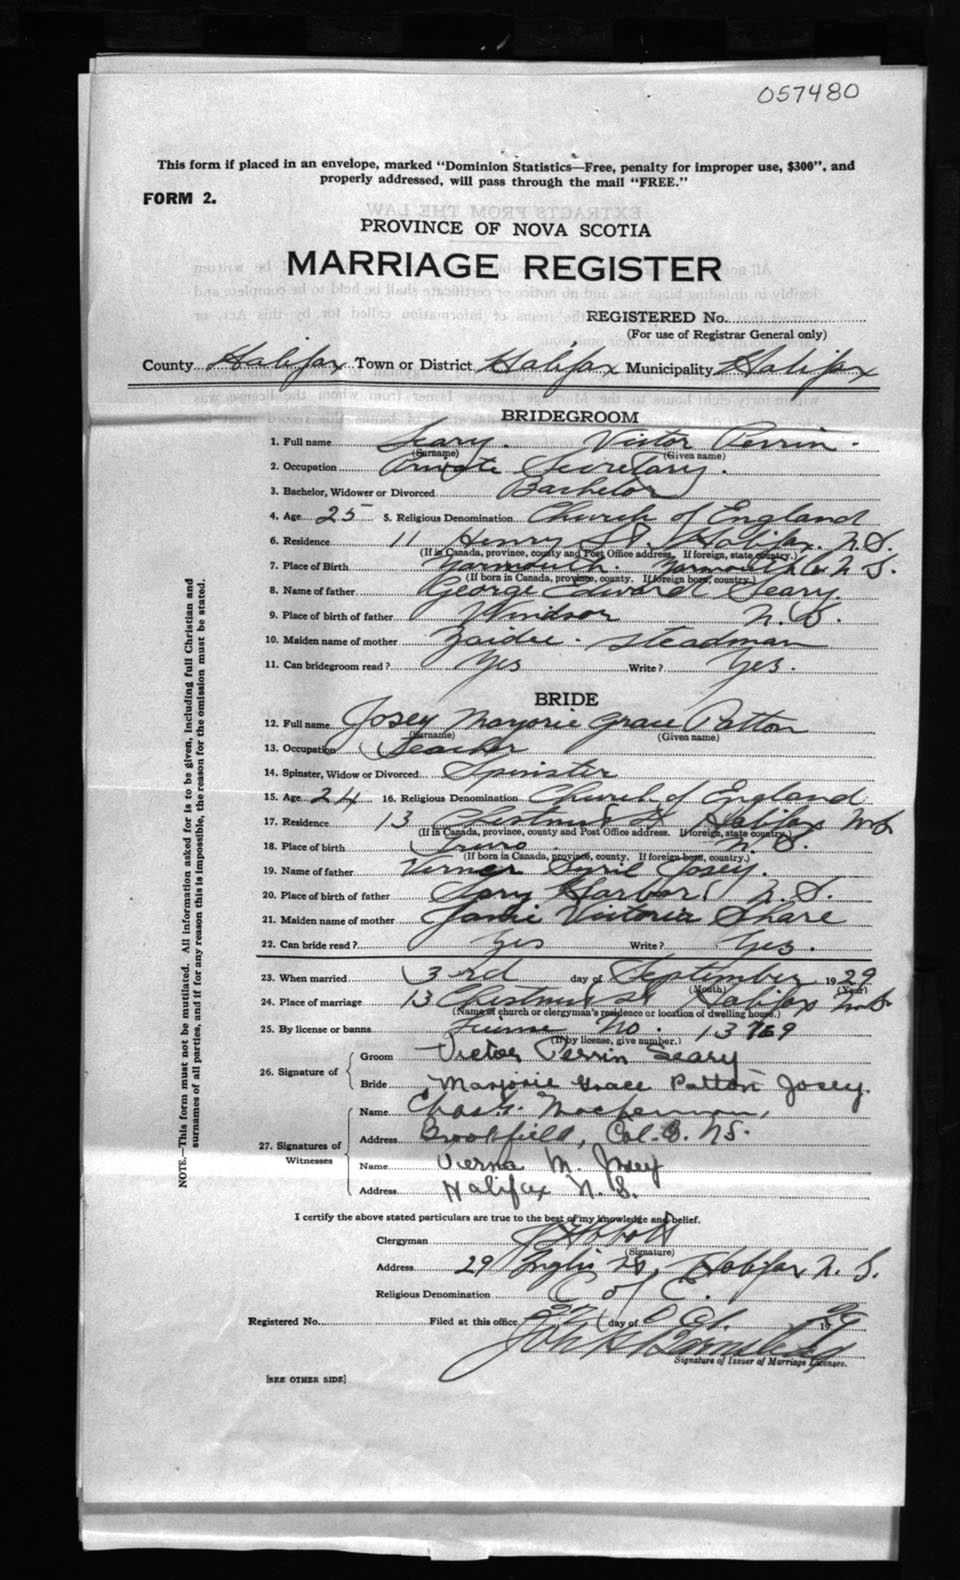 057480
This form if placed in an envelope, marked "Dominion Statistics—Free, penalty for improper use, $300", and
properly addressed, will pass through the mail "FREE."
FORM 2.
PROVINCE OF NOVA SCOTIA
MARRIAGE REGISTER
REGISTERED No.
(For use of Registrar General only)
County Halifax Town or District Halifax Municipality Halifax
BRIDEGROOM
1. Full name Seary. Victor Perrin.
(Surname) (Given name)
2. Occupation Private Secretary.
3. Bachelor, Widower or Divorced Bachelor
4. Age 25 5. Religious Denomination Church of England
6. Residence 11 Henry St. Halifax. N.S.
(If in Canada, province, county and Post Office address. If foreign, state country.)
7. Place of Birth Yarmouth. Yarmouth Co N.S.
(If born in Canada, province, county. If foreign born, country.)
8. Name of father George Edward Seary.
9. Place of birth of father Windsor N.S.
10. Maiden name of mother Zaidee. Steadman
11. Can bridegroom read? Yes Write? Yes.
BRIDE
12. Full name Josey Marjorie Grace Patton
(Surname) (Given name)
13. Occupation Teacher
14. Spinster, Widow or Divorced Spinster
15. Age 24 16. Religious Denomination Church of England
17. Residence 13 Chestnut St Halifax N.S.
(If in Canada, province, county and Post Office address. If foreign, state country.)
18. Place of birth Truro. N.S.
(If born in Canada, province, county. If foreign born, country.)
19. Name of father Syril Josey.
20. Place of birth of father Harbor N.S.
21. Maiden name of mother Janie Victoria Share
22. Can bride read? Yes Write? Yes.
23. When married 3rd day of September 1929
(Month) (Year)
24. Place of marriage 13 Chestnut St Halifax N.S.
(Name of church or clergyman's residence or location of dwelling house.)
25. By license or banns No. 13769
(If by license, give number.)
26. Signature of
Groom Victor Perrin Seary
Bride Marjorie Grace Patton Josey.
27. Signatures of Witnesses
Name Chas.
Address Brookfield, Col. Co. N.S.
Name Verna M. Josey
Address Halifax N.S.
I certify the above stated particulars are true to the best of my knowledge and belief.
Clergyman
(Signature)
Address 29 Inglis St, Halifax N.S.
Religious Denomination C of E.
Registered No. Filed at this office 27 day of Oct. 1929
Signature of Issuer of Marriage Licenses.
[SEE OTHER SIDE]
NOTE.—This form must not be mutilated. All information asked for is to be given, including full Christian and
surnames of all parties, and if for any reason this is impossible, the reason for the omission must be stated.